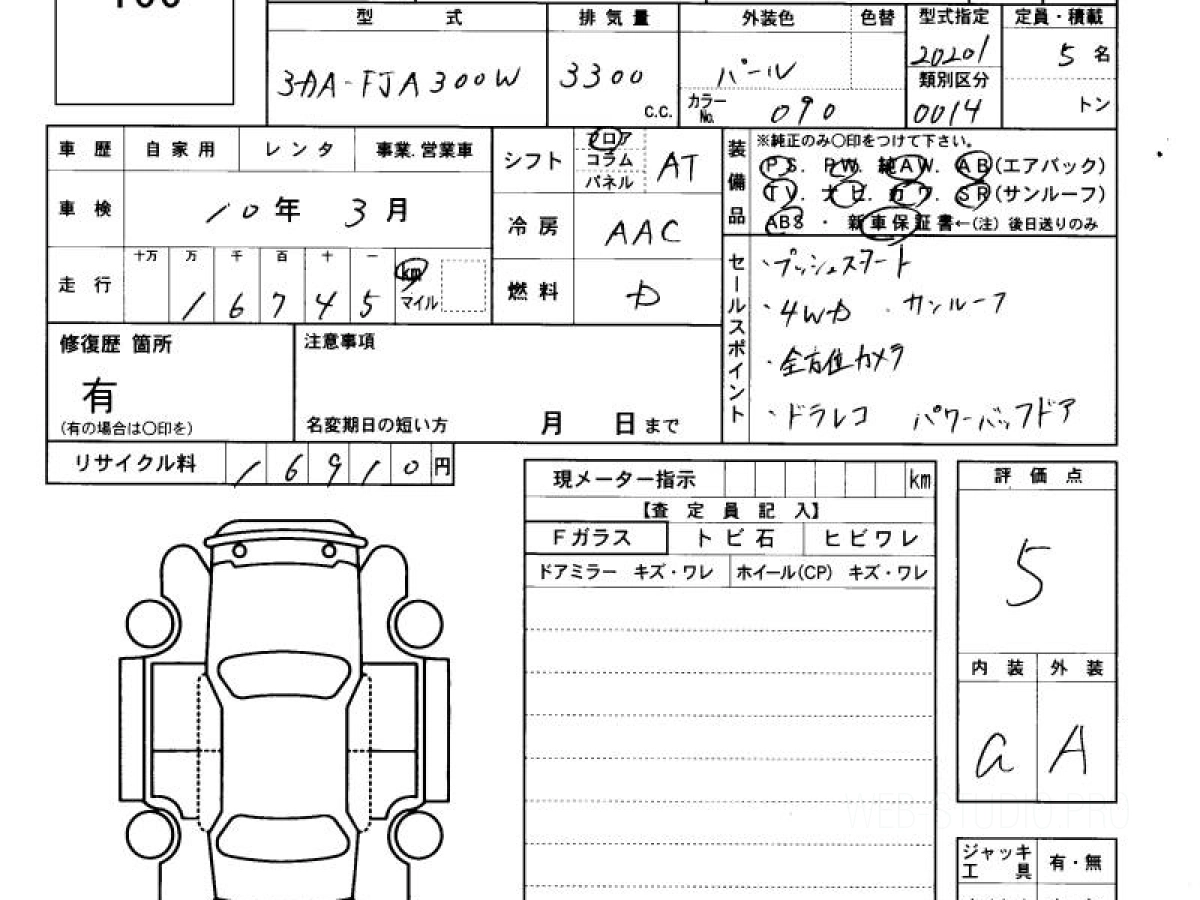 型 式
排 気 量
外装色
色替
型式指定
定員・積載
3DA-FJA300W
3300
C.C.
パール
カラー No.
090
20201
類別区分
0014
5 名
トン
車 歴
自 家 用
レ ン タ
事業.営業車
車 検
10 年 3 月
走 行
十万 万 千 百 十 一
1 6 7 4 5
km
マイル
シフト
フロア
コラム
パネル
AT
冷 房
AAC
燃 料
D
装備品
※純正のみ○印をつけて下さい。
PS. PW. 純AW. AB(エアバック)
TV. ナビ. カワ. SR(サンルーフ)
ABS ・ 新車保証書←(注) 後日送りのみ
セールスポイント
・プッシュスタート
・4WD ・サンルーフ
・全方位カメラ
・ドラレコ パワーバックドア
修復歴 箇所
有
(有の場合は○印を)
注意事項
名変期日の短い方 月 日 まで
リサイクル料
1 6 9 1 0 円
現メーター指示
km
【査 定 員 記 入】
Fガラス
ト ビ 石
ヒ ビ ワ レ
ドアミラー キズ・ワレ
ホイール(CP) キズ・ワレ
評 価 点
5
内 装
外 装
a
A
WEB-STUDIO.PRO
ジャッキ
工 具
有・無